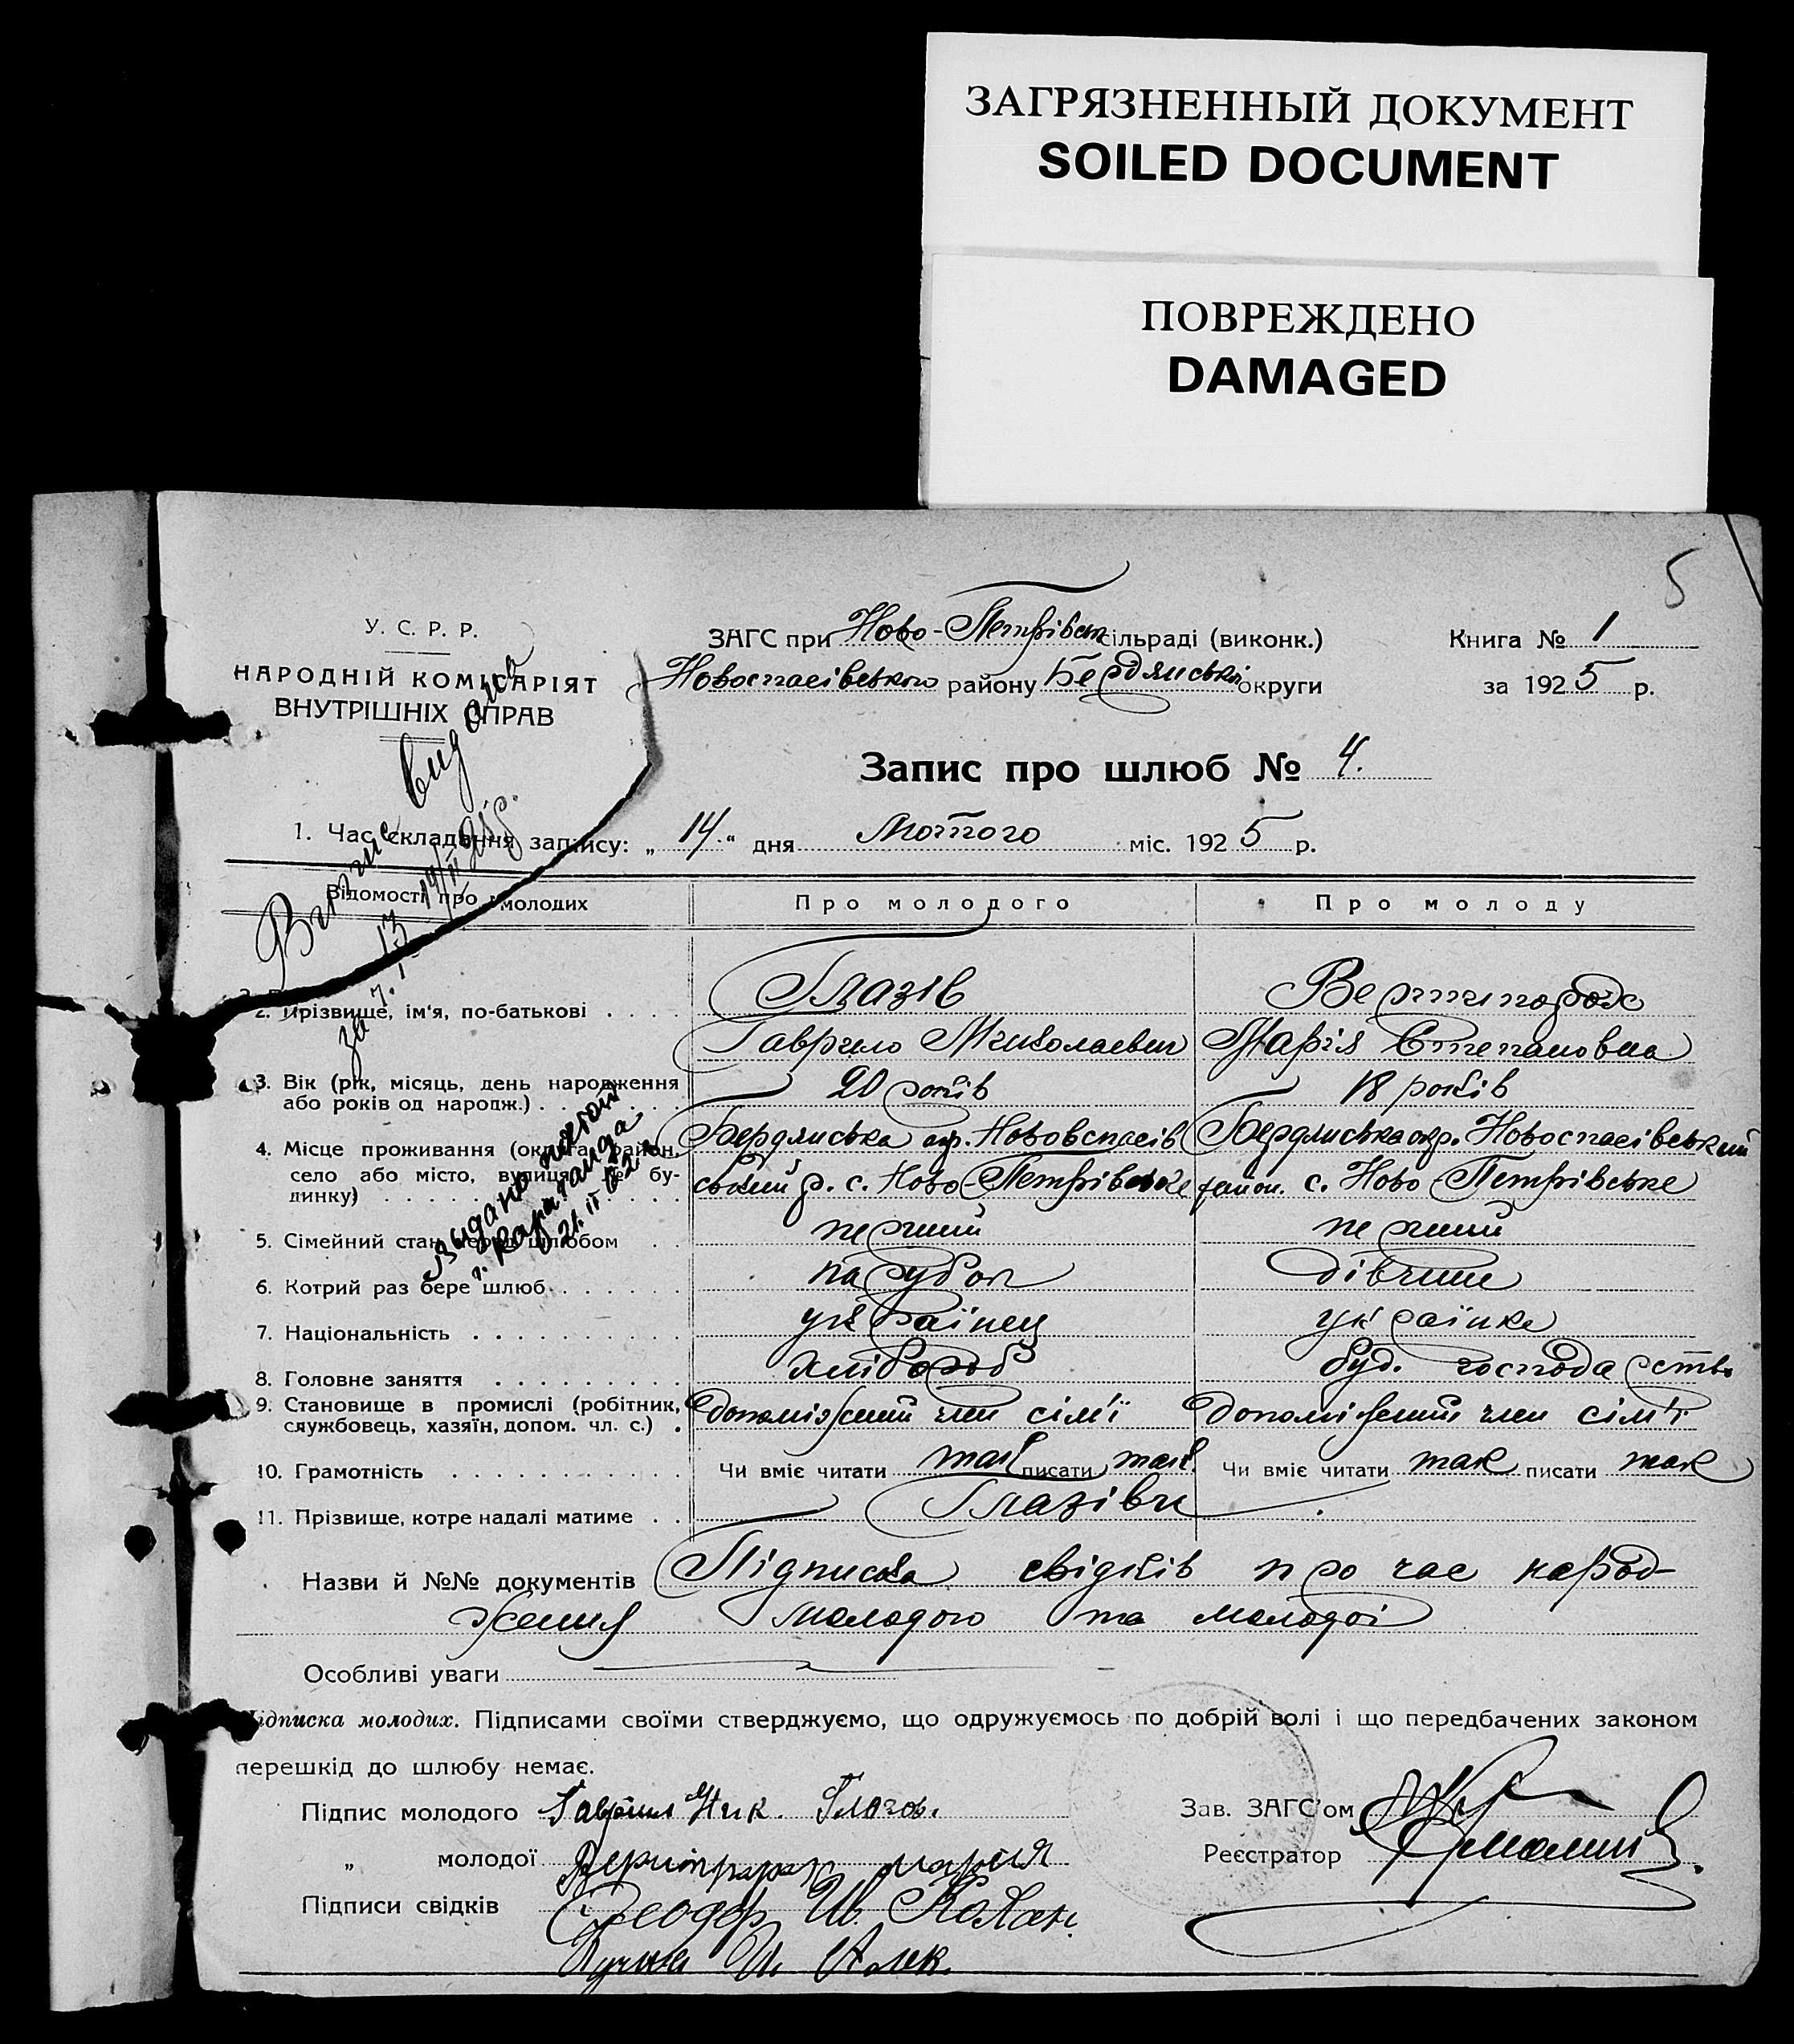 ЗАГРЯЗНЕННЫЙ ДОКУМЕНТ
SOILED DOCUMENT
ПОВРЕЖДЕНО
DAMAGED
5
У. С. Р. Р.
НАРОДНІЙ КОМІСАРІЯТ
ВНУТРІШНІХ СПРАВ
ЗАГС при Ново-Петрівськ сільраді (виконк.)
Новоспасівського району Бердянської округи
Книга № 1
за 1925 р.
Запис про шлюб № 4.
1. Час складання запису: „14.“ дня Лютого міс. 1925 р.
Витяг видано
за ч. 13 14/II 25 р.
Відомості про молодих
Про молодого
Про молоду
2. Прізвище, ім'я, по-батькові
Глазів Гаврило Миколаевич
Вертипорох Марія Степановна
3. Вік (рік, місяць, день народження або років од народж.)
20 років
18 років
4. Місце проживання (округа, район, село або місто, вулиця, № будинку)
Бердянська окр. Новоспасівський р. с. Ново-Петрівське
Бердянська окр. Новоспасівський район. с. Ново-Петрівське
Видано повтор
г. Караганда
21.II 62 г.
5. Сімейний стан перед шлюбом
перший
перший
6. Котрий раз бере шлюб
парубок
дівчина
7. Національність
українец
українка
8. Головне заняття
хлібороб
буд. господарство
9. Становище в промислі (робітник, службовець, хазяїн, допом. чл. с.)
Допоміжний член сім'ї
Допоміжний член сім'ї
10. Грамотність
Чи вміє читати так писати так.
Чи вміє читати так писати так
11. Прізвище, котре надалі матиме
Глазіви
Назви й №№ документів Підписка свідків про час народ-
ження молодого та молодої
Особливі уваги
Підписка молодих. Підписами своїми стверджуємо, що одружуємось по добрій волі і що передбачених законом
перешкід до шлюбу немає.
Підпис молодого Гаврил Ник. Глазов.
„ молодої Вертипорох Мария
Підписи свідків Феодор Ив.
Алек.
Зав. ЗАГС'ом
Реєстратор